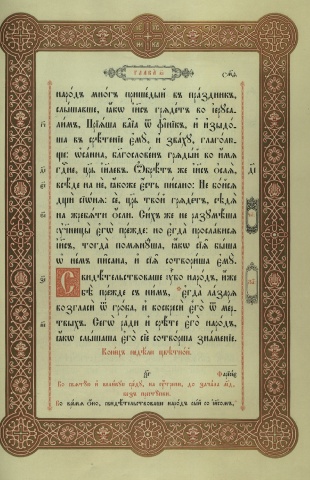 народъ многъ пришедый въ праздникъ,
слышавше, ꙗкѡ і҆и҃съ грѧдетъ во і҆еруса-
лимъ, Прїѧша ваїа ѿ фїнїкъ, и҆ и҆зыдо-
ша въ срѣтенїе є҆мꙋ̀, и҆ звахꙋ, глаголю-
ще: ѡ҆санна, благословенъ грѧдый во и҆мѧ
гдⷭ҇не, цр҃ь і҆и҃левъ. Ѡ҆брѣтъ же і҆и҃съ ѻ҆слѧ,
всѣде на не, ꙗкоже є҆сть писано: Не бойсѧ
дщи сїѡнѧ: се, цр҃ь твой грѧдетъ, сѣдѧ
на жребѧти ѻ҆сли. Сихъ же не разꙋмѣша
ᲂу҆чн҃цы є҆гѡ̀ прежде: но є҆гда прослависѧ
і҆и҃съ, тогда помѧнꙋша, ꙗкѡ сїѧ̑ быша
ѡ҆ немъ писана, и҆ сїѧ̑ сотвориша є҆мꙋ̀.
Свидѣтельствоваше ᲂу҆бо народъ, и҆же
бѣ прежде съ нимъ, є҆гда лазарѧ
возгласи ѿ гроба, и҆ воскреси є҆го ѿ мер-
твыхъ. Сегѡ ради и҆ срѣте є҆го народъ,
ꙗкѡ слышаша є҆го сїе сотворша знаменїе.
Конецъ недѣли цвѣтной.
Во свѧтый и҆ великїй
Во времѧ ѻ҆но, свидѣтельствоваше народъ